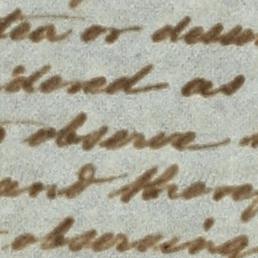 tea or dess
idered as
observe
and throug
observing